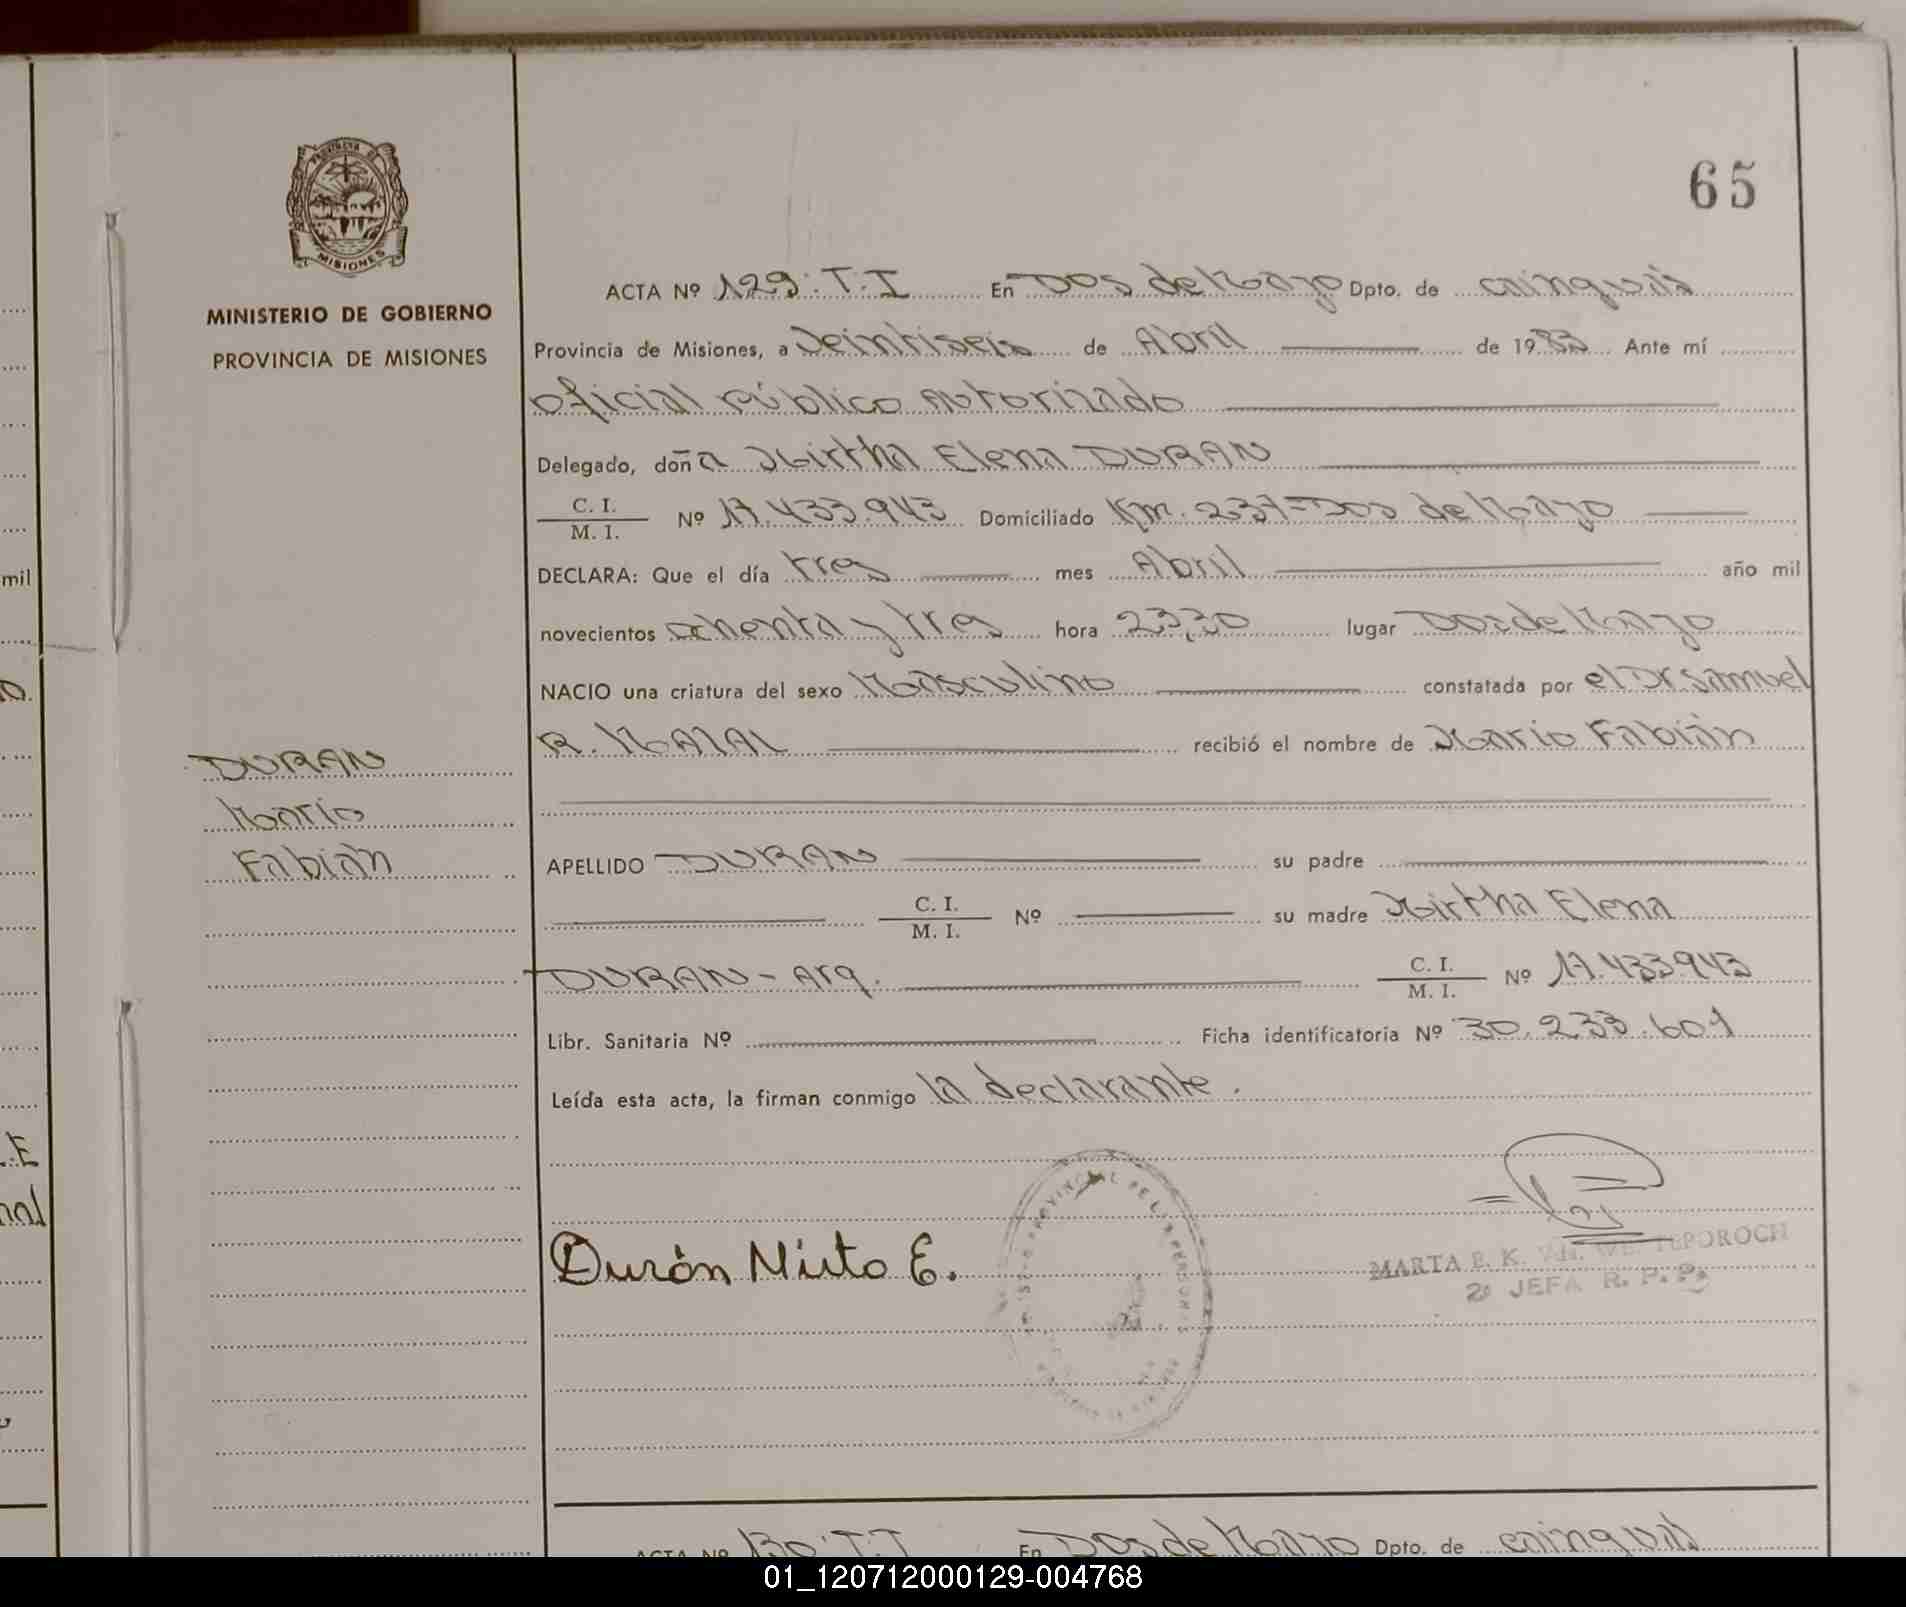 65
MINISTERIO DE GOBIERNO
PROVINCIA DE MISIONES
PROVINCIA DE
MISIONES
ACTA Nº 129. T. I En Dos de Mayo Dpto. de Cainguás
Provincia de Misiones, a Veintiseis de Abril de 1983 Ante mí
oficial público autorizado
Delegado, doña Mirtha Elena DURAN
C. I. / M. I. Nº 17.433.943 Domiciliado Km. 237-Dos de Mayo
DECLARA: Que el día tres mes Abril año mil
novecientos ochenta y tres hora 23,30 lugar Dos de Mayo
NACIO una criatura del sexo Masculino constatada por el Dr Samuel
R. recibió el nombre de Mario Fabián
DURAN
Mario
Fabián
APELLIDO DURAN su padre
C. I. / M. I. Nº su madre Mirtha Elena
DURAN - Arg. C. I. / M. I. Nº 17.433943
Libr. Sanitaria Nº Ficha identificatoria Nº 30.233.601
Leída esta acta, la firman conmigo la declarante.
Durán Mirta E.
MARTA E. K. TEPOROCH
2º JEFA R. P. P.
mil
ACTA Nº 130. T. I En Dos de Mayo Dpto. de Cainguás
01_120712000129-004768